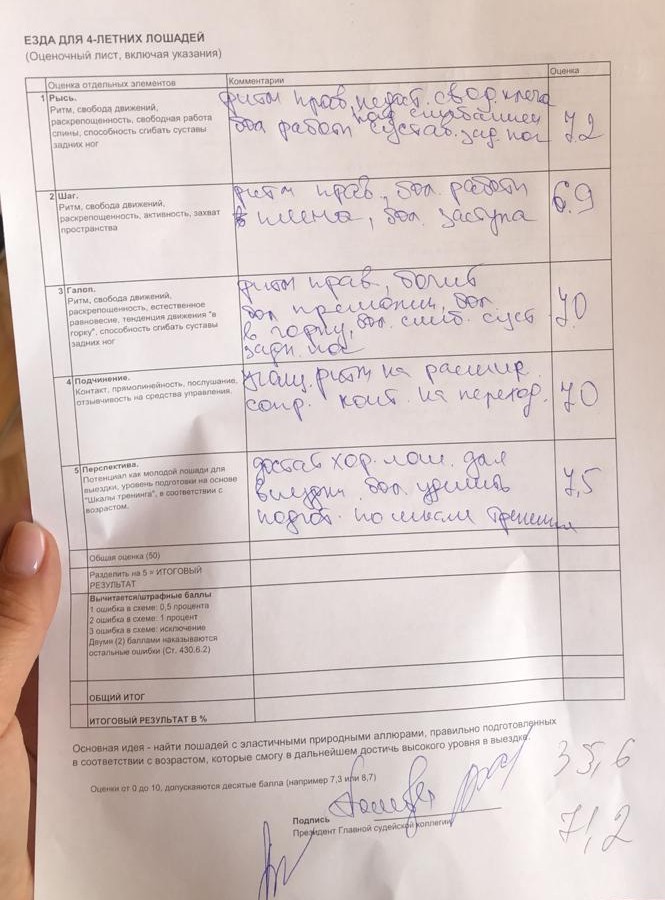 ЕЗДА ДЛЯ 4-ЛЕТНИХ ЛОШАДЕЙ
(Оценочный лист, включая указания)
Оценка отдельных элементов
Комментарии
Оценка
1 Рысь.
Ритм, свобода движений,
раскрепощенность, свободная работа
спины, способность сгибать суставы
задних ног
ритм прав, недост. свод. плеча
над сгибанием
бол работ сустав. зад. ног
7.2
2 Шаг.
Ритм, свобода движений,
раскрепощенность, активность, захват
пространства
ритм прав, бол. работ
плеча, бол. заступа
6.9
3 Галоп.
Ритм, свобода движений,
раскрепощенность, естественное
равновесие, тенденция движения "в
горку", способность сгибать суставы
задних ног
ритм прав,
бол
бол
в горку, бол. сгиб. суст
задн. ног
7.0
4 Подчинение.
Контакт, прямолинейность, послушание,
отзывчивость на средства управления.
ритм на расшир.
сопр. конт. на переход.
7.0
5 Перспектива.
Потенциал как молодой лошади для
выездки, уровень подготовки на основе
"Шкалы тренинга", в соответствии с
возрастом.
достат хор. лош. для
выездки бол. уделить
подгот. по шкале тренинга
7,5
Общая оценка (50)
Разделить на 5 = ИТОГОВЫЙ
РЕЗУЛЬТАТ
Вычитается/штрафные баллы
1 ошибка в схеме: 0,5 процента
2 ошибка в схеме: 1 процент
3 ошибка в схеме: исключение
Двумя (2) баллами наказываются
остальные ошибки (Ст. 430.6.2)
ОБЩИЙ ИТОГ
ИТОГОВЫЙ РЕЗУЛЬТАТ В %
Основная идея - найти лошадей с эластичными природными аллюрами, правильно подготовленных
в соответствии с возрастом, которые смогу в дальнейшем достичь высокого уровня в выездке.
Оценки от 0 до 10, допускаются десятые балла (например 7,3 или 8,7)
35,6
Подпись
Президент Главной судейской коллегии
71,2